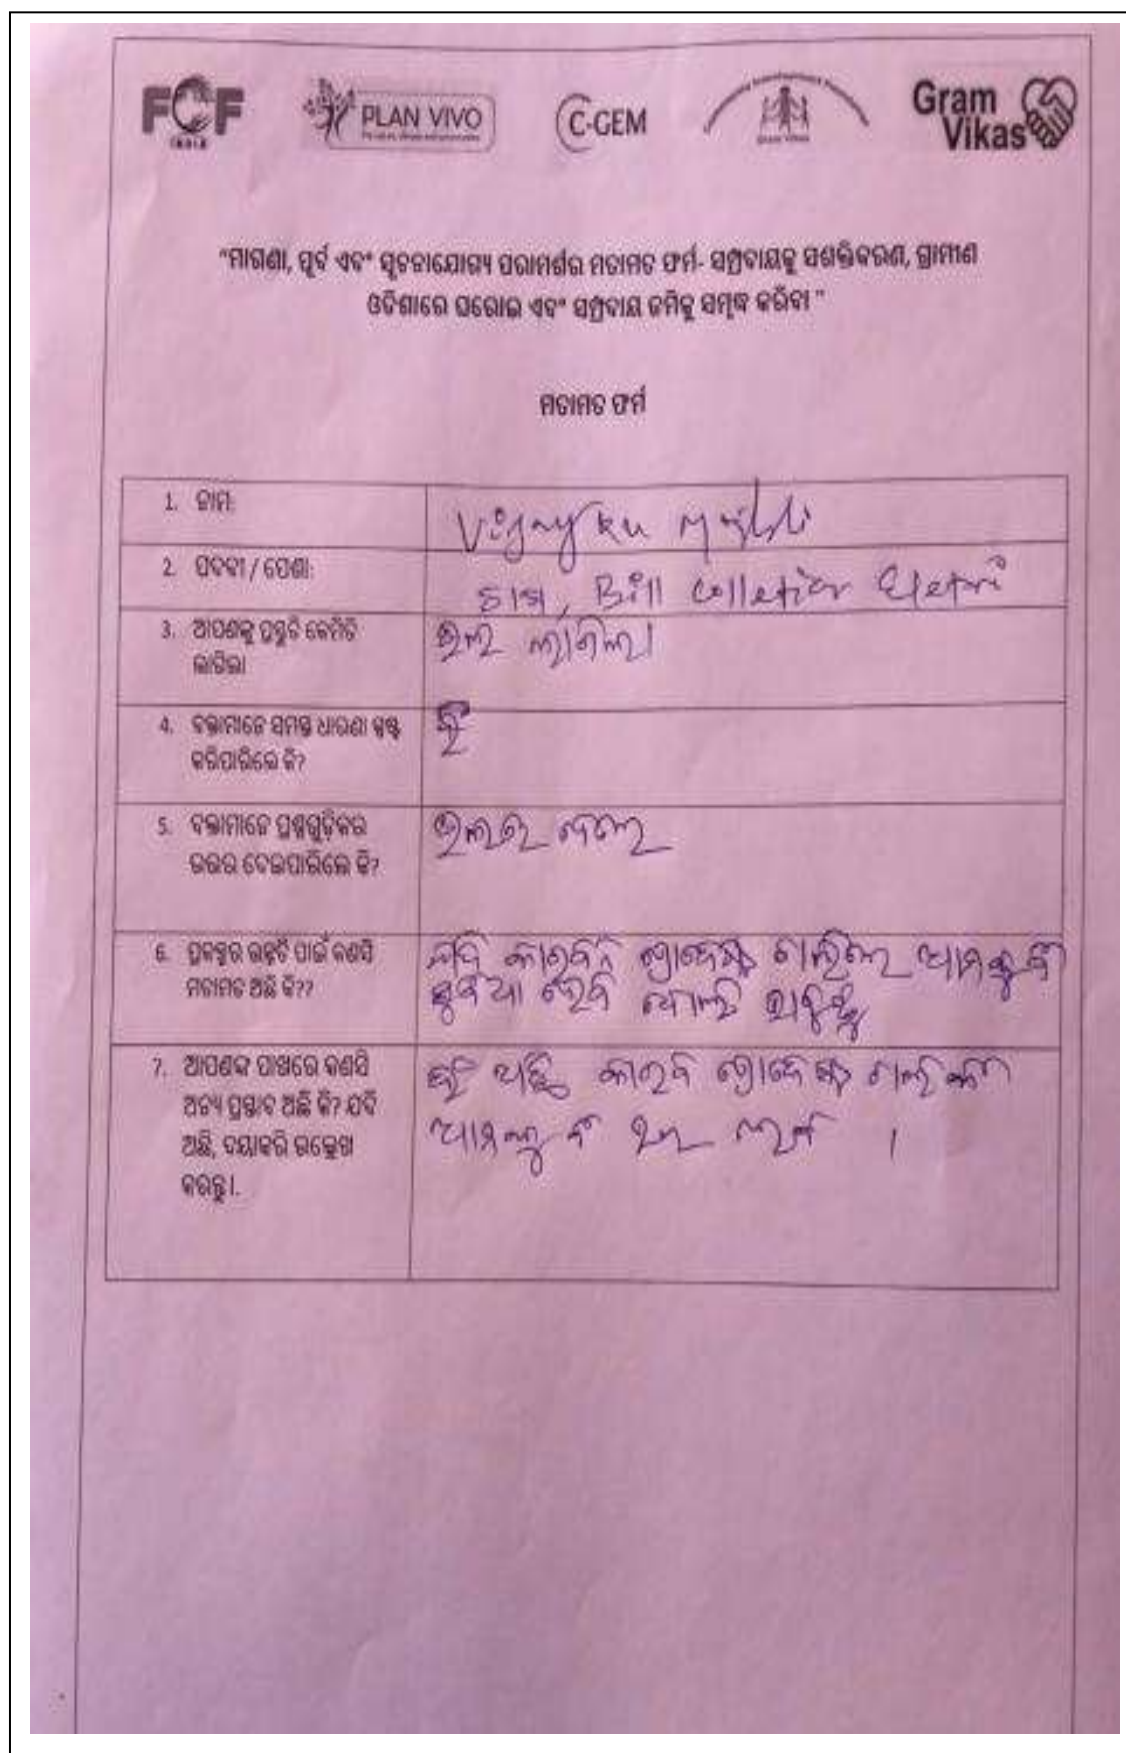 FCF
INDIA
PLAN VIVO
C-GEM
Gram Vikas
Gram
Vikas
"ମାଗଣା, ପୂର୍ବ ଏବଂ ସୂଚନାଯୋଗ୍ୟ ପରାମର୍ଶର ମତାମତ ଫର୍ମ- ସମ୍ପ୍ରଦାୟକୁ ସଶକ୍ତିକରଣ, ଗ୍ରାମୀଣ
ଓଡିଶାରେ ଘରୋଇ ଏବଂ ସମ୍ପ୍ରଦାୟ ଜମିକୁ ସମୃଦ୍ଧ କରିବା "
ମତାମତ ଫର୍ମ
1. ନାମ:
Vijay Ku Majhi
2. ପଦବୀ / ପେଶା:
ଚାଷ, Bill Colletior
3. ଆପଣଙ୍କୁ ପ୍ରସ୍ତୁତି କେମିତି
ଲାଗିଲା
ଭଲ ଲାଗିଲା
4. ବକ୍ତାମାନେ ସମସ୍ତ ଧାରଣା ସ୍ପଷ୍ଟ
କରିପାରିଲେ କି?
ହଁ
5. ବକ୍ତାମାନେ ପ୍ରଶ୍ନଗୁଡ଼ିକର
ଉତ୍ତର ଦେଇପାରିଲେ କି?
ଭଲରେ ଦେଲେ
6. ପ୍ରକଳ୍ପର ଉନ୍ନତି ପାଇଁ କଣସି
ମତାମତ ଅଛି କି??
ଯଦି କାରବନ ପ୍ରୋଜେକ୍ଟ ଚାଲିଲେ ଆମକୁ ବି
ସୁବିଧା ହେବ ବୋଲି ଭାବୁଛୁ
7. ଆପଣଙ୍କ ପାଖରେ କଣସି
ଅନ୍ୟ ପ୍ରସ୍ତାବ ଅଛି କି? ଯଦି
ଅଛି, ଦୟାକରି ଉଲ୍ଲେଖ
କରନ୍ତୁ।.
ହଁ ଅଛି କାରବନ ପ୍ରୋଜେକ୍ଟ
ଆମକୁ ବି ଭଲ ।